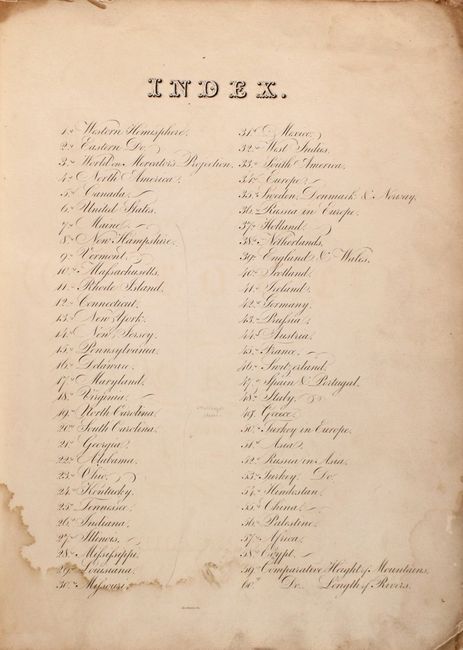 INDEX.
1. Western Hemisphere.
2. Eastern Do.
3. World on Mercator's Projection.
4. North America.
5. Canada.
6. United States.
7. Maine.
8. New Hampshire.
9. Vermont.
10. Massachusetts.
11. Rhode Island.
12. Connecticut.
13. New York.
14. New Jersey.
15. Pennsylvania.
16. Delaware.
17. Maryland.
18. Virginia.
19. North Carolina.
20. South Carolina.
21. Georgia.
22. Alabama.
23. Ohio.
24. Kentucky.
25. Tennessee.
26. Indiana.
27. Illinois.
28. Mississippi.
29. Louisiana.
30. Missouri.
31. Mexico.
32. West Indies.
33. South America.
34. Europe.
35. Sweden, Denmark & Norway.
36. Russia in Europe.
37. Holland.
38. Netherlands.
39. England & Wales.
40. Scotland.
41. Ireland.
42. Germany.
43. Prussia.
44. Austria.
45. France.
46. Switzerland.
47. Spain & Portugal.
48. Italy.
49. Greece.
50. Turkey in Europe.
51. Asia.
52. Russia in Asia.
53. Turkey Do.
54. Hindostan.
55. China.
56. Palestine.
57. Africa.
58. Egypt.
59. Comparative Height of Mountains.
60. Do. Length of Rivers.